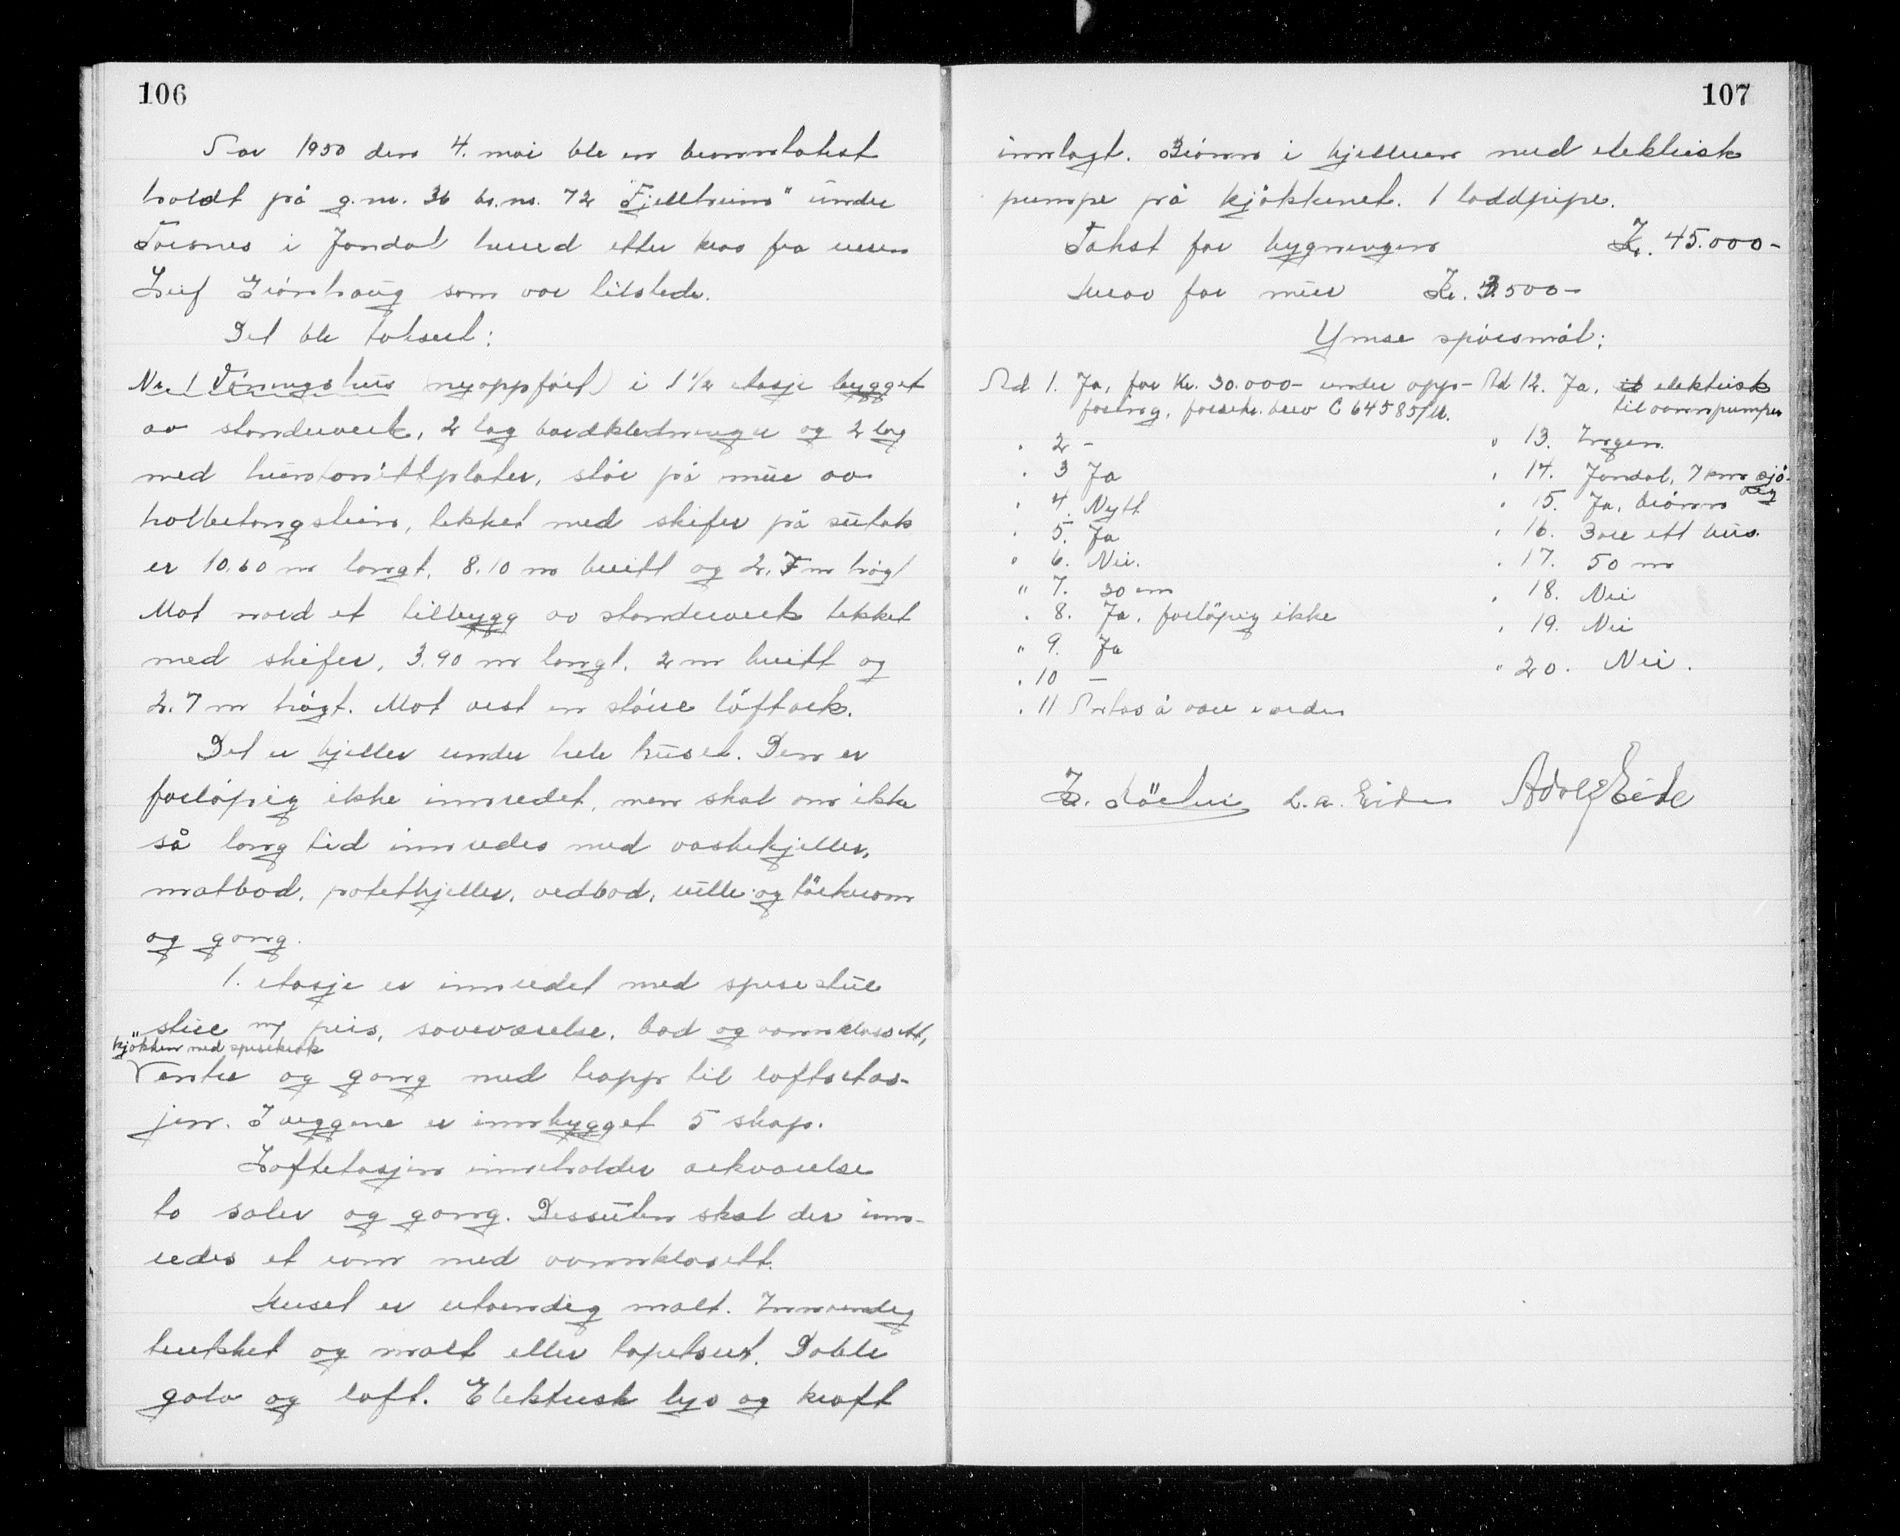 106
År 1950 den 4. mai ble en branntakst
holdt på g.nr. 36 br.nr. 72 "Fjellheim" under
Torsnes i Jondal herred etter krav fra eieren
Leif Grönhaug som var tilstede.
Det ble taksert:
Nr. 1 Våningshus (nyoppfört) i 1 1/2 etasje bygget
av stenderverk, 2 lag bordkledninger og 2 lag
med huntonittplater, står på mur av
holbetongstein, tekket med skifer på sutak
er 10.60 m langt, 8.10 m breitt og 2.7 m högt
Mot nord et tilbygg av stenderverk tekket
med skifer, 3.90 m langt, 2 m breitt og
2.7 m högt. Mot vest en större löftark.
Det er kjeller under hele huset. Den er
forlöpig ikke innredet, men skal om ikke
så lang tid innredes med vaskekjeller,
matbod, potetkjeller, vedbod, rulle og törkerom
og gang.
1. etasje er innredet med spisestue
stue m/ peis, soveværelse, bad og vannklosett,
kjökken med spisekrok
Ventre og gang med trapp til loftsetas-
jen. I veggene er innbygget 5 skap.
Loftetasjen inneholder arkværelse
to saler og gang. Dessuten skal der inn-
redes et rom med vannklosett.
Huset er utvendig malt. Innvendig
trukket og malt eller tapetsert. Doble
golv og loft. Elektrisk lys og kraft
107
innlagt. Brönn i kjelleren med elektrisk
pumpe på kjökkenet. 1 loddpipe.
Takst for bygningen Kr. 45.000-
Herav for mur Kr. 3500-
Ymse spörsmål:
Ad 1. Ja, for Kr. 30.000- under opp-
föring, forsikr. brev C 64585/M.
" 2 -
" 3 Ja
" 4. Nytt
" 5. Ja
" 6. Nei.
" 7. 20 cm
" 8. Ja, forlöpig ikke
" 9. Ja
" 10 -
" 11 Antas å være i orden
Ad 12. Ja, elektrisk
til vannpumpen
" 13. Ingen.
" 14. Jondal, 7 km sjö-
veg
" 15. Ja, brönn
" 16. Bare ett hus.
" 17. 50 m
" 18. Nei
" 19. Nei
" 20. Nei.
L. A. Eide Adolf Eide